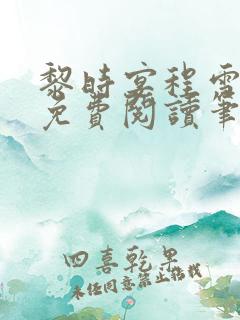 黎時宴程雪
免費閱讀筆
四喜乾果
未經同意禁止搭載